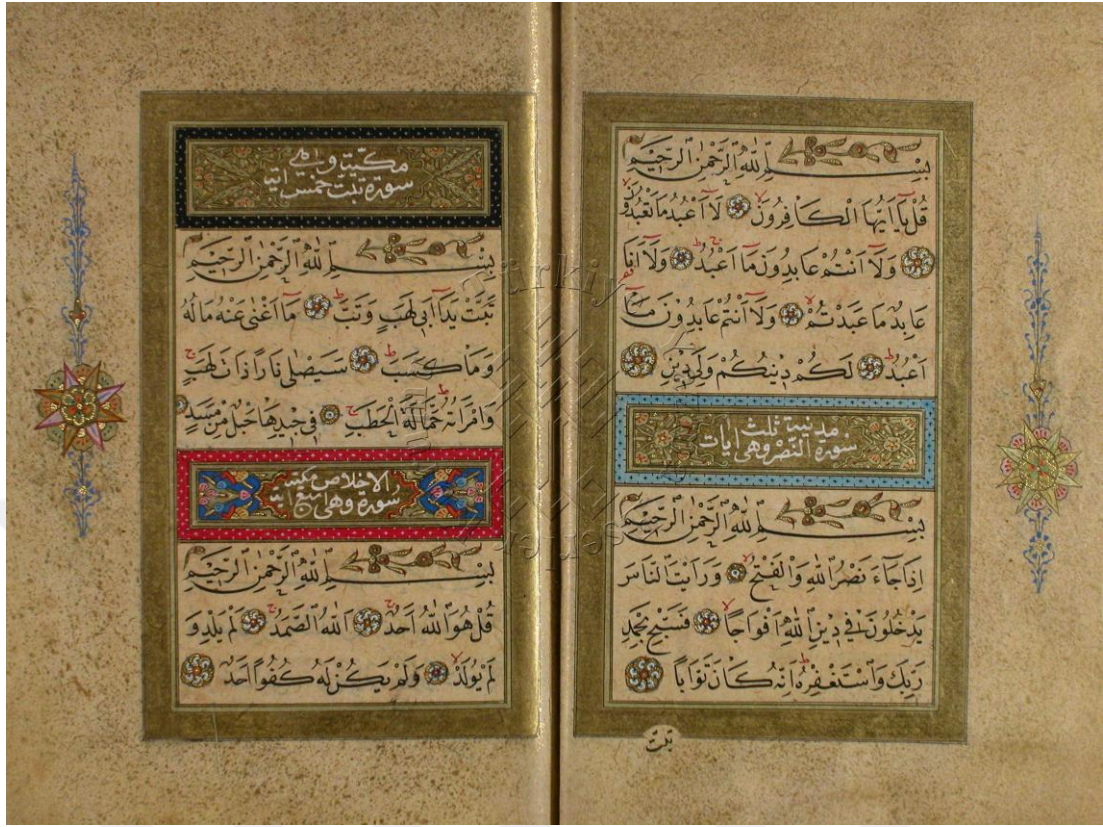 بِسْمِ اللّٰهِ الرَّحْمٰنِ الرَّحِيمِ
قُلْ يَٓا اَيُّهَا الْكَافِرُونَ لَٓا اَعْبُدُ مَا تَعْبُدُونَ
وَلَٓا اَنْتُمْ عَابِدُونَ مَٓا اَعْبُدُ وَلَٓا اَنَا
عَابِدٌ مَا عَبَدْتُمْ وَلَٓا اَنْتُمْ عَابِدُونَ مَٓا
اَعْبُدُ لَكُمْ دِينُكُمْ وَلِيَ دِينِ
سورة النصر وهى ثلث ايات مدنية
بِسْمِ اللّٰهِ الرَّحْمٰنِ الرَّحِيمِ
اِذَا جَٓاءَ نَصْرُ اللّٰهِ وَالْفَتْحُ وَرَاَيْتَ النَّاسَ
يَدْخُلُونَ فِي دِينِ اللّٰهِ اَفْوَاجًا فَسَبِّحْ بِحَمْدِ
رَبِّكَ وَاسْتَغْفِرْهُ اِنَّهُ كَانَ تَوَّابًا
تبت
سورة تبت خمس ايات مكية وهى
بِسْمِ اللّٰهِ الرَّحْمٰنِ الرَّحِيمِ
تَبَّتْ يَدَٓا اَبِي لَهَبٍ وَتَبَّ مَٓا اَغْنٰى عَنْهُ مَالُهُ
وَمَا كَسَبَ سَيَصْلٰى نَارًا ذَاتَ لَهَبٍ
وَامْرَاَتُهُ حَمَّالَةَ الْحَطَبِ فِي جِيدِهَا حَبْلٌ مِنْ مَسَدٍ
سورة الاخلاص مكية وهى اربع ايات
بِسْمِ اللّٰهِ الرَّحْمٰنِ الرَّحِيمِ
قُلْ هُوَ اللّٰهُ اَحَدٌ اَللّٰهُ الصَّمَدُ لَمْ يَلِدْ وَ
لَمْ يُولَدْ وَلَمْ يَكُنْ لَهُ كُفُوًا اَحَدٌ